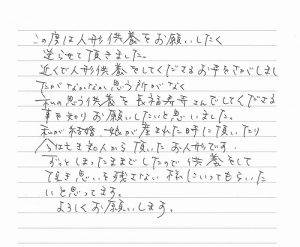 この度は人形供養をお願いしたく
送らせて頂きました。
近くで人形供養をしてくださるお寺をさがしまし
たがなかなか思う所がなく
私の思う供養を長福寿寺さんでしてくださる
事を知りお願いしたいと思いました。
私が結婚、娘が産まれた時に頂いたり
今はなき知人から頂いたお人形です
ずっとしまったままでしたので供養をして
頂き思いを残さない様にいってもらいた
いと思ってます。
よろしくお願いします。